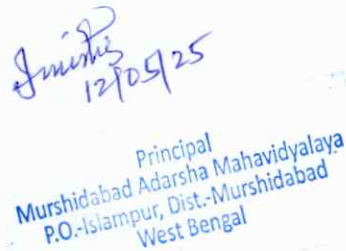 12/05/25
Principal
Murshidabad Adarsha Mahavidyalaya
P.O.-Islampur, Dist.-Murshidabad
West Bengal